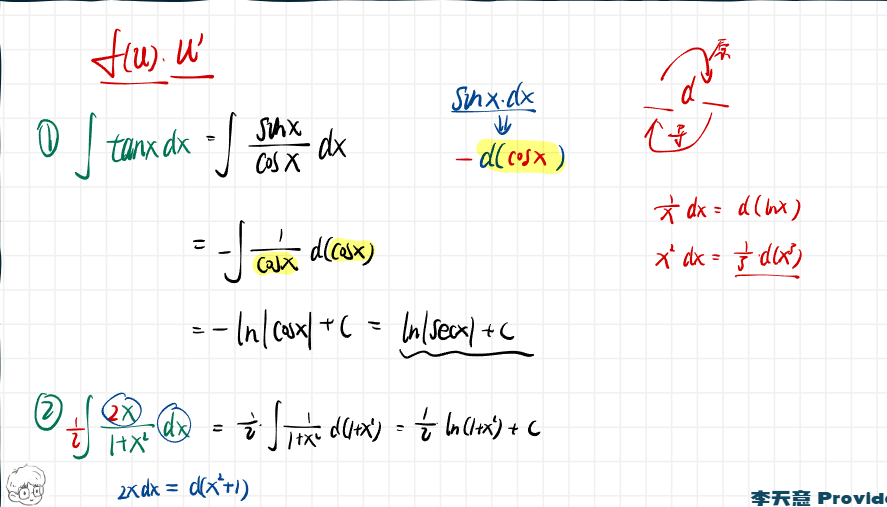 f(u)·u'
① ∫ tanx dx = ∫ sinx/cosx dx
sinx·dx
⇓
- d(cosx)
原
d
导
= -∫ 1/cosx d(cosx)
1/x dx = d(lnx)
x² dx = 1/3·d(x³)
= -ln|cosx| + C = ln|secx| + C
② 1/2 ∫ 2x/1+x² dx = 1/2·∫ 1/1+x² d(1+x²) = 1/2 ln(1+x²) + C
2xdx = d(x²+1)
李天意 Provide